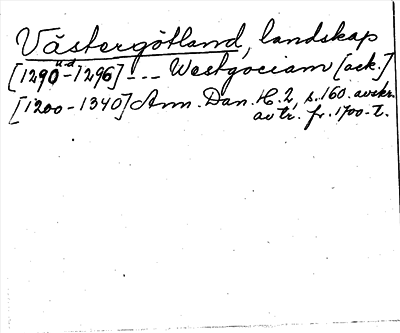 Västergötland, landskap
[1290-1296] --- Westgociam [ack.]
[1200-1340] Ann. Dan. H. 2, s. 160. avskr.
av tr. fr. 1700-t.